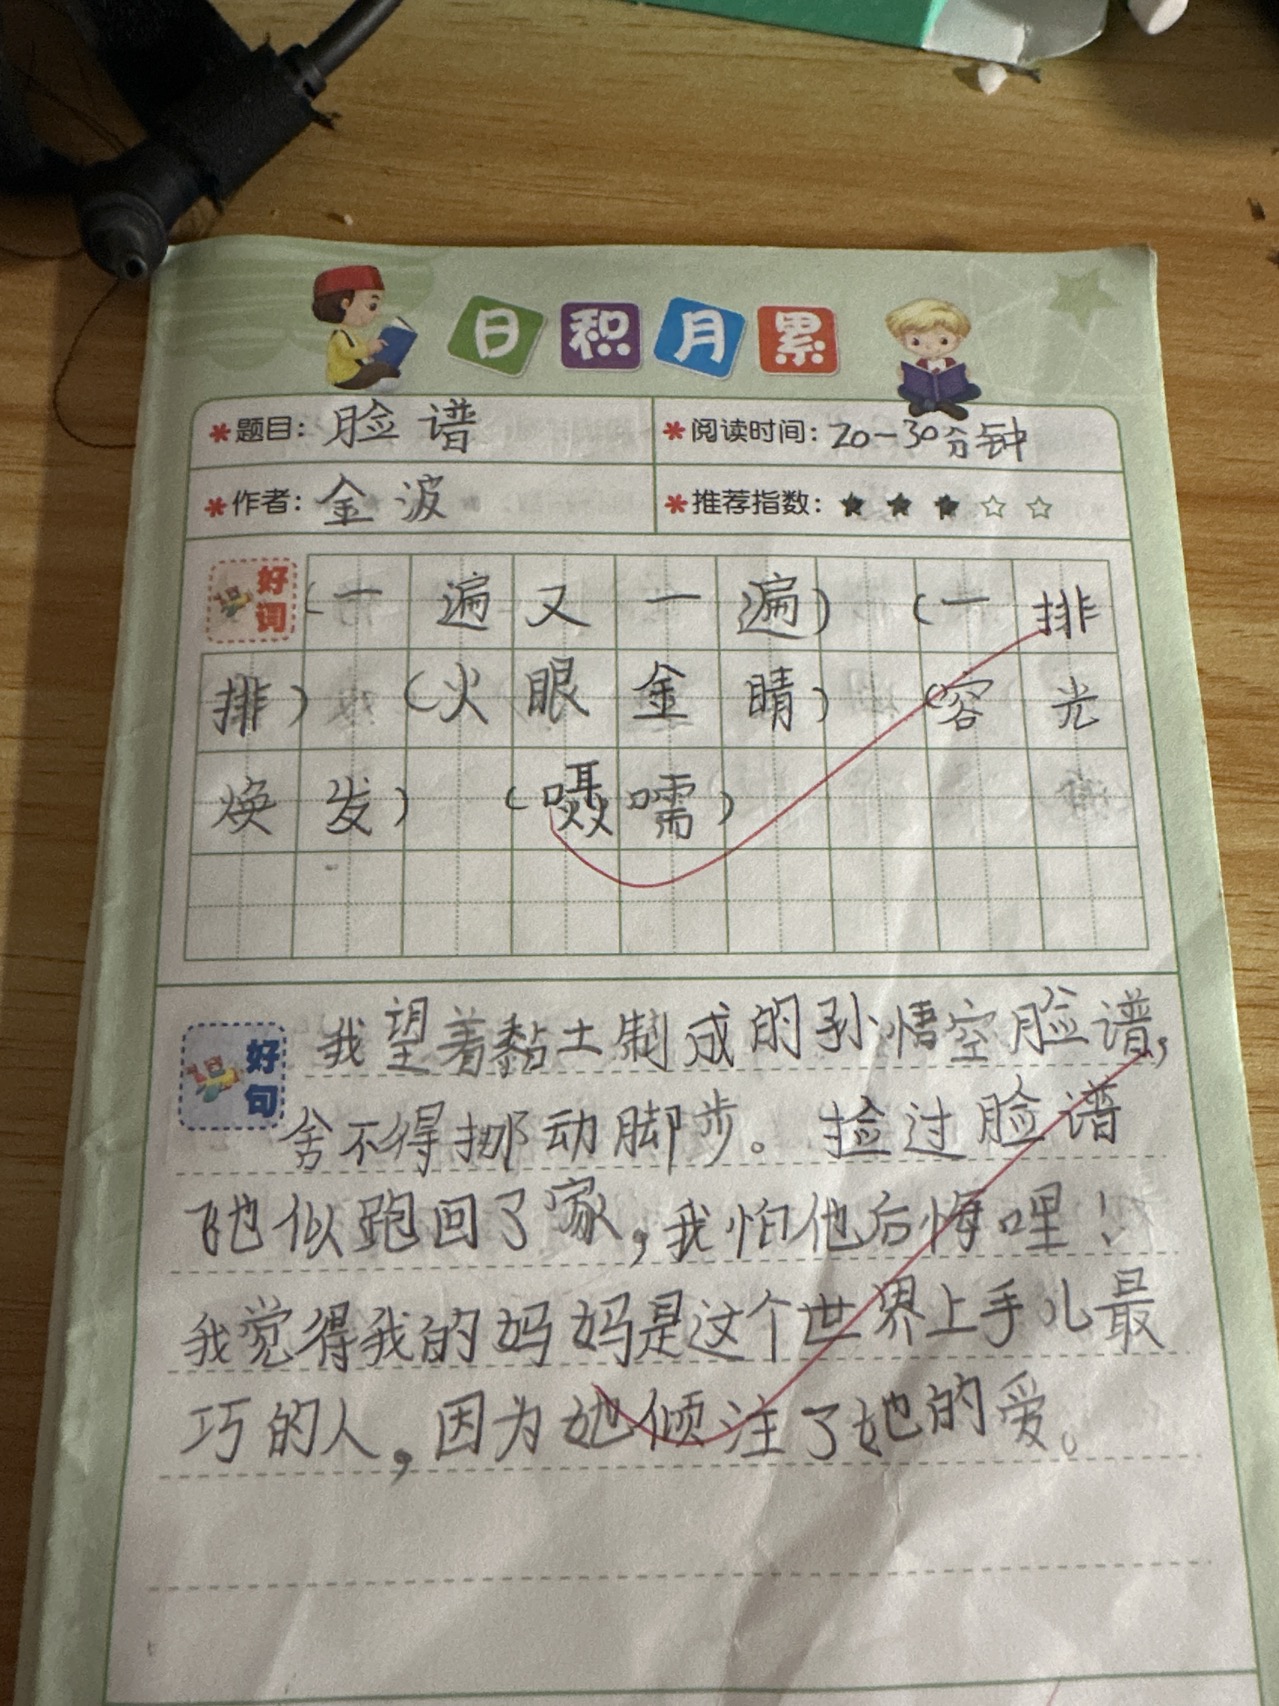 日积月累
*题目：脸谱 *阅读时间：20一30分钟
*作者：金波 *推荐指数：★★★☆☆
好词 (一遍又一遍) (一排
排) (火眼金睛) (容光
焕发) (嗫嚅)
好句 我望着黏土制成的孙悟空脸谱，
舍不得挪动脚步。捡过脸谱
飞也似跑回了家，我怕他后悔哩！
我觉得我的妈妈是这个世界上手儿最
巧的人，因为她倾注了她的爱。